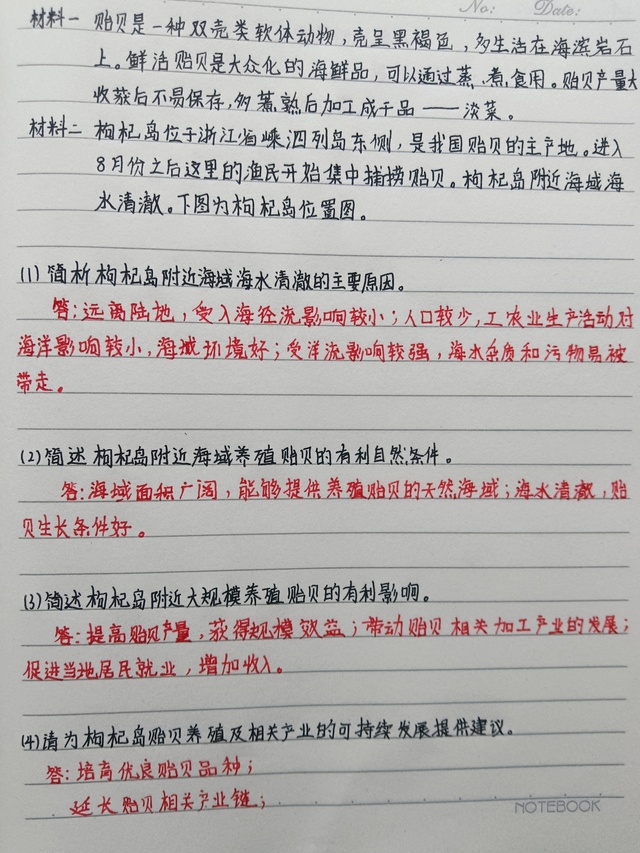 No: Date:
材料一 贻贝是一种双壳类软体动物,壳呈黑褐色,多生活在海滨岩石
上。鲜活贻贝是大众化的海鲜品,可以通过蒸、煮食用。贻贝产量大
收获后不易保存,多蒸熟后加工成干品——淡菜。
材料二 枸杞岛位于浙江省嵊泗列岛东侧,是我国贻贝的主产地。进入
8月份之后这里的渔民开始集中捕捞贻贝。枸杞岛附近海域海
水清澈。下图为枸杞岛位置图。
(1)简析枸杞岛附近海域海水清澈的主要原因。
答:远离陆地,受入海径流影响较小;人口较少,工农业生产活动对
海洋影响较小,海域环境好;受洋流影响较强,海水杂质和污物易被
带走。
(2)简述枸杞岛附近海域养殖贻贝的有利自然条件。
答:海域面积广阔,能够提供养殖贻贝的天然海域;海水清澈,贻
贝生长条件好。
(3)简述枸杞岛附近大规模养殖贻贝的有利影响。
答:提高贻贝产量,获得规模效益;带动贻贝相关加工产业的发展;
促进当地居民就业,增加收入。
(4)请为枸杞岛贻贝养殖及相关产业的可持续发展提供建议。
答:培育优良贻贝品种;
延长贻贝相关产业链;
NOTEBOOK